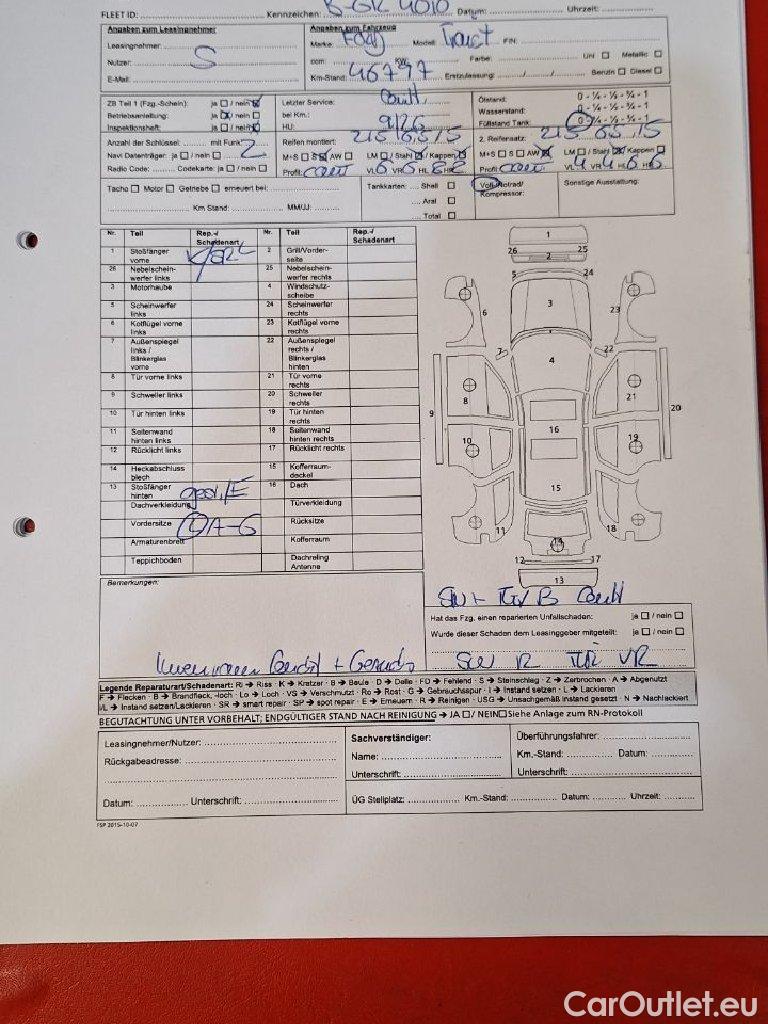 FLEET ID: Kennzeichen: B-GR 4010 Datum: Uhrzeit:
Angaben zum Leasingnehmer
Angaben zum Fahrzeug
Leasingnehmer:
Marke: Ford Modell: FIN:
Nutzer: S
ccm: KW: Farbe: Uni ☐ Metallic ☐
E-Mail:
Km-Stand: 46797 Erstzulassung: / / Benzin ☐ Diesel ☐
ZB Teil 1 (Fzg.-Schein): ja ☐ / nein ☒
Betriebsanleitung: ja ☒ / nein ☐
Inspektionsheft: ja ☐ / nein ☒
Letzter Service:
bei Km.:
HU: 9/26
Ölstand: 0 - ¼ - ½ - ¾ - 1
Wasserstand: 0 - ¼ - ½ - ¾ - 1
Füllstand Tank: 0 - ¼ - ½ - ¾ - 1
Anzahl der Schlüssel: mit Funk: 2
Navi Datenträger: ja ☐ / nein ☐
Radio Code: Codekarte: ja ☐ / nein ☐
Reifen montiert: 215/65/15
M+S ☐ S ☒ AW ☐ LM ☐ / Stahl ☒ / Kappen ☒
Profil: VL 6 VR 5 HL 8 HR 8
2. Reifensatz: 215 65 15
M+S ☐ S ☐ AW ☒ LM ☐ / Stahl ☒ / Kappen ☐
Profil: VL 4 VR 4 HL 6 HR 6
Tacho ☐ Motor ☐ Getriebe ☐ erneuert bei:
Km Stand: MM/JJ:
Tankkarten: Shell ☐
Aral ☐
Total ☐
Voll-/Notrad/
Kompressor:
Sonstige Ausstattung:
Nr. Teil Rep.-/ Schadenart Nr. Teil Rep.-/ Schadenart
1 Stoßfänger vorne 2 Grill/Vorder- seite
26 Nebelschein- werfer links 25 Nebelschein- werfer rechts
3 Motorhaube 4 Windschutz- scheibe
5 Scheinwerfer links 24 Scheinwerfer rechts
6 Kotflügel vorne links 23 Kotflügel vorne rechts
7 Außenspiegel links / Blinkerglas vorne 22 Außenspiegel rechts / Blinkerglas hinten
8 Tür vorne links 21 Tür vorne rechts
9 Schweller links 20 Schweller rechts
10 Tür hinten links 19 Tür hinten rechts
11 Seitenwand hinten links 18 Seitenwand hinten rechts
12 Rücklicht links 17 Rücklicht rechts
14 Heckabschluss blech 15 Kofferraum- deckel
13 Stoßfänger hinten 16 Dach
Dachverkleidung Türverkleidung
Vordersitze L A-G Rücksitze
Armaturenbrett Kofferraum
Teppichboden Dachreling Antenne
1
26 25
2
5 24
6 3 23
7 4 22
8 21
9 16 20
10 19
15
11 18
14
12 17
13
Bemerkungen:
Hat das Fzg. einen reparierten Unfallschaden: ja ☐ / nein ☐
Wurde dieser Schaden dem Leasinggeber mitgeteilt: ja ☐ / nein ☐
SW R TÜR VR
Legende Reparaturart/Schadenart: Ri → Riss · K → Kratzer · B → Beule · D → Delle · FD → Fehlend · S → Steinschlag · Z → Zerbrochen · A → Abgenutzt
F → Flecken · B → Brandfleck, -loch · Lo → Loch · VS → Verschmutzt · Ro → Rost · G → Gebrauchsspur · I → Instand setzen · L → Lackieren
I/L → Instand setzen/Lackieren · SR → smart repair · SP → spot repair · E → Erneuern · R → Reinigen · USG → Unsachgemäß instand gesetzt · N → Nachlackiert
BEGUTACHTUNG UNTER VORBEHALT; ENDGÜLTIGER STAND NACH REINIGUNG → JA ☐ / NEIN ☐ Siehe Anlage zum RN-Protokoll
Leasingnehmer/Nutzer:
Rückgabeadresse:
Datum: Unterschrift:
Sachverständiger:
Name:
Unterschrift:
Überführungsfahrer:
Km.-Stand: Datum:
Unterschrift:
ÜG Stellplatz: Km.-Stand: Datum: Uhrzeit:
FSP 2015-10-09
CarOutlet.eu